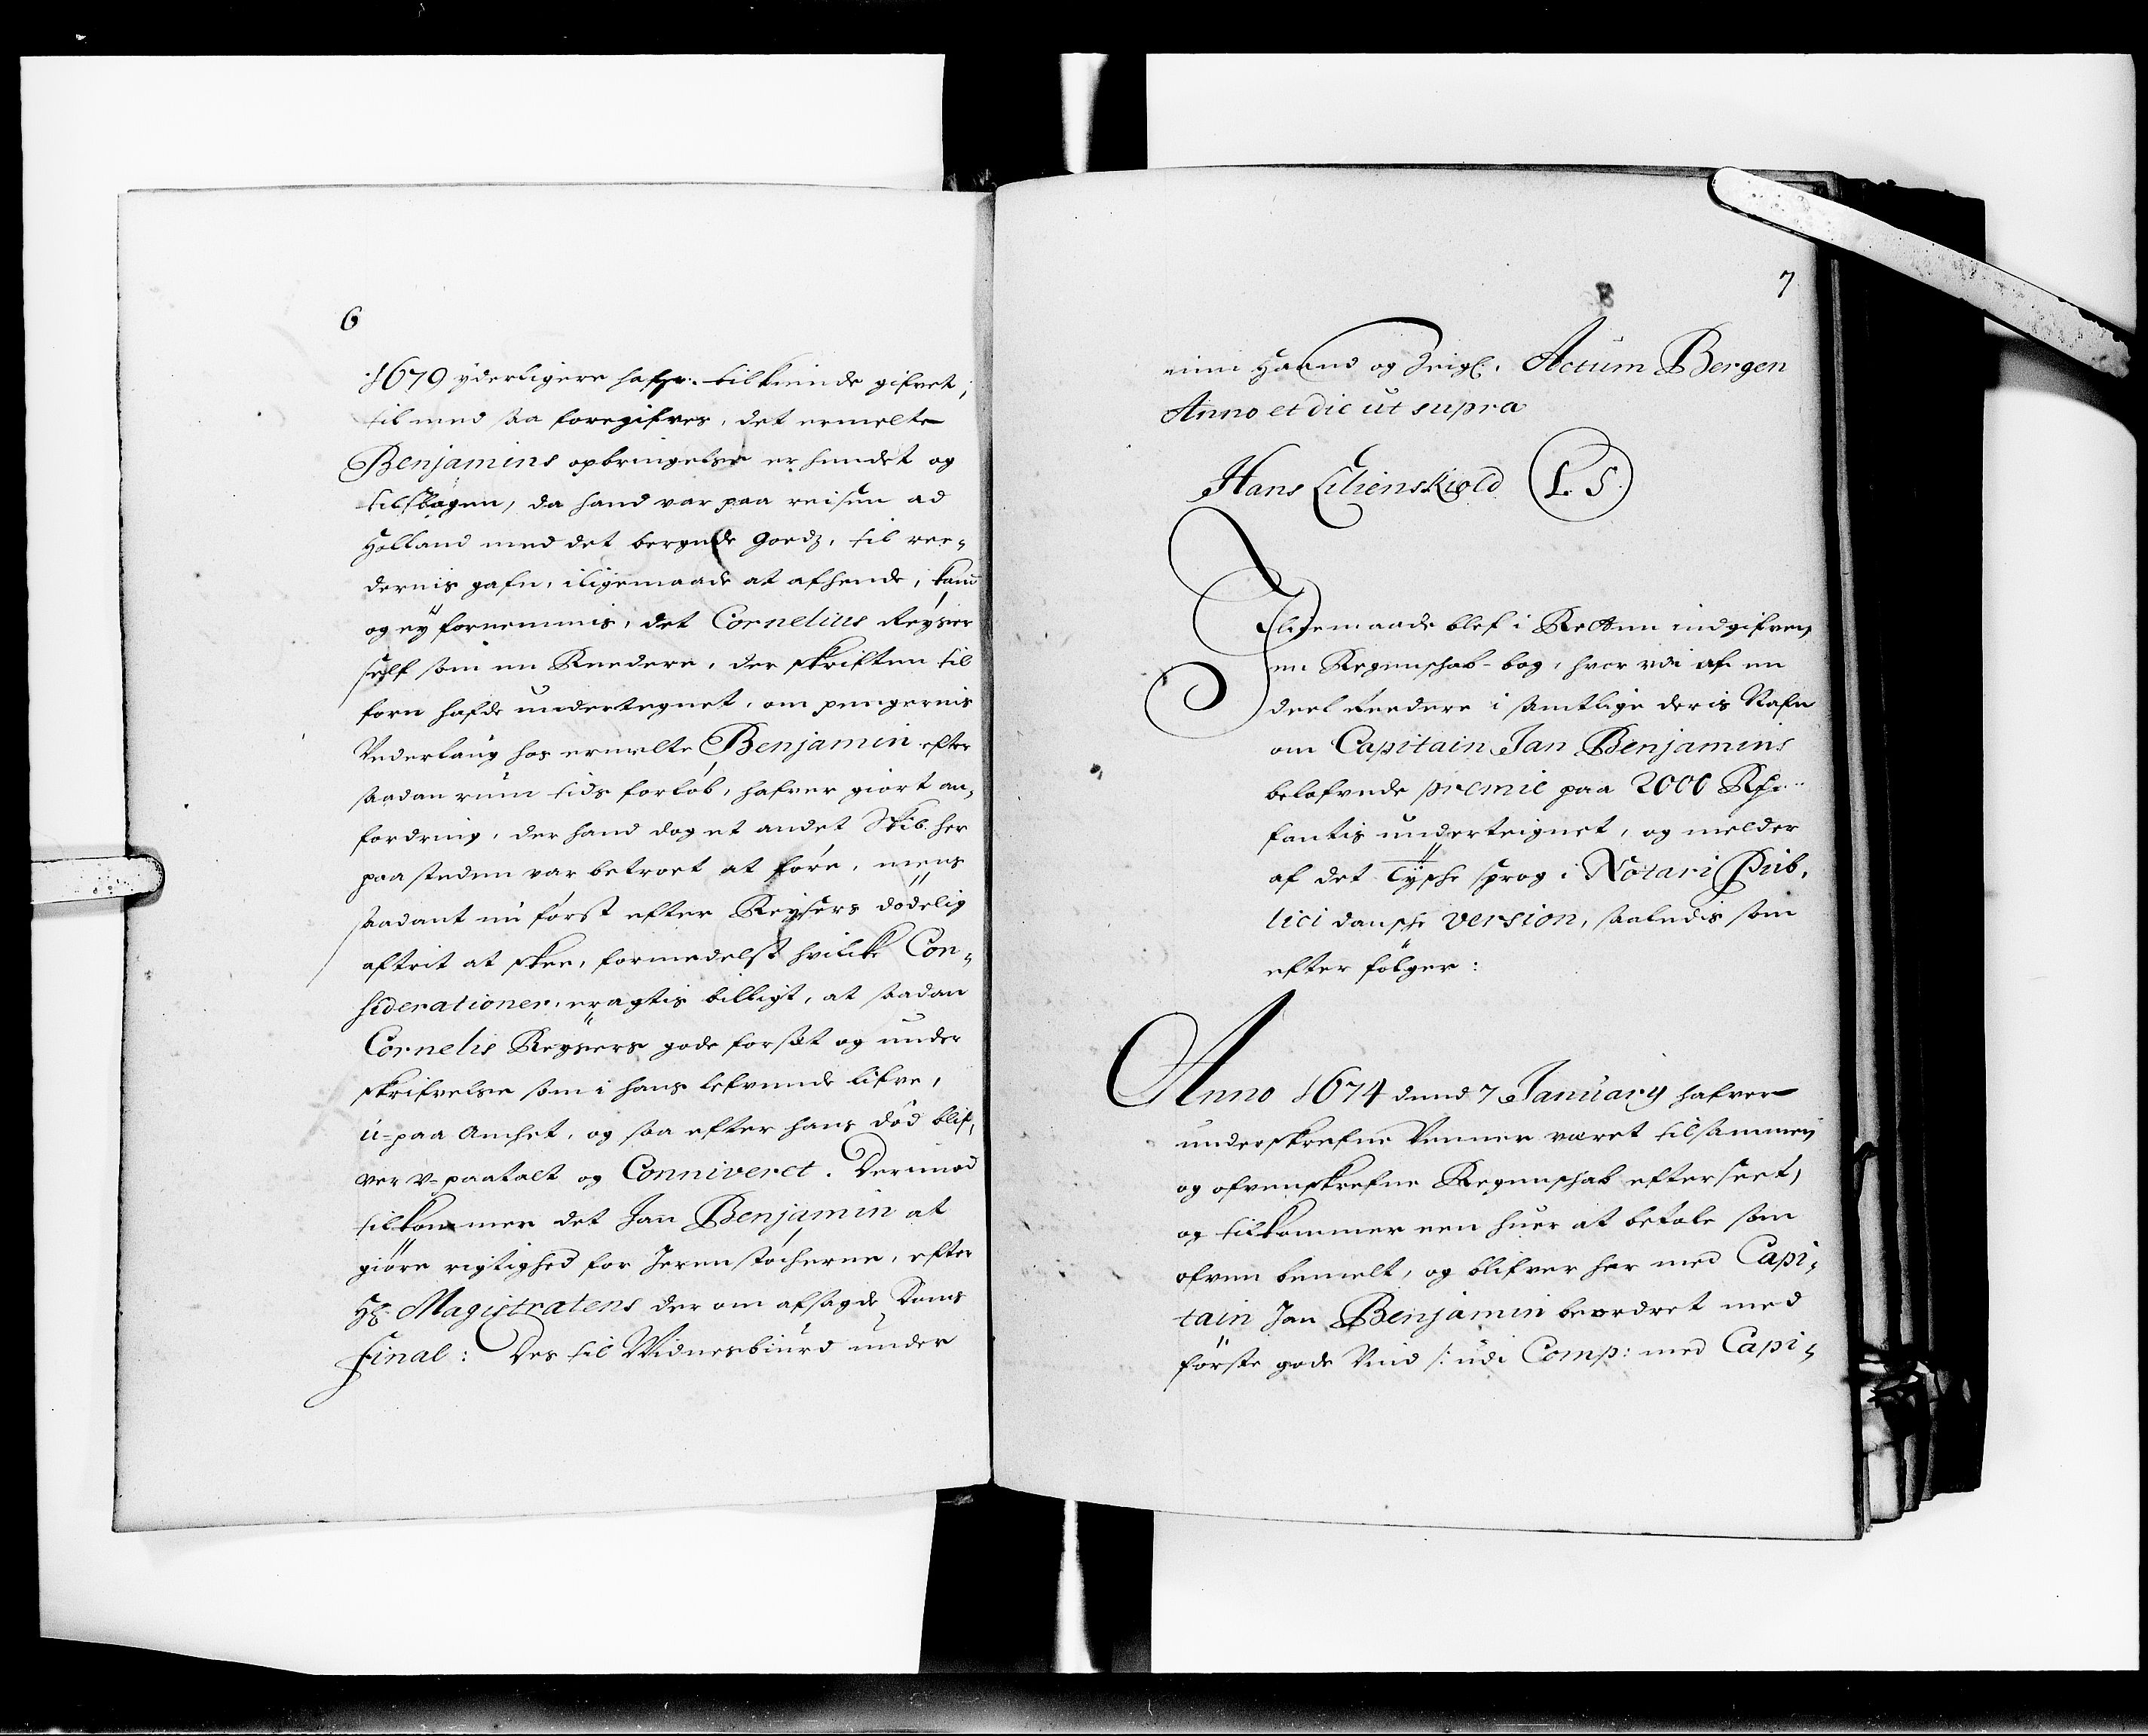 6
1679 yderligere hafr: tilkiende gifvet,
til med saa foregifves, det ermelte
Benjamins opbringelse er hendet og
tilslagen, da hand var paa reisen ad
Holland med det bergede Goedz, til ree-
dernis gafn, iligemaade at afhende, kand
og ey fornemmis, det Cornelius Reyser
self som en Reedere, der skriften til
forn hafde undertegnet, om pengernis
Vederlaug hos ermelte Benjamin efter
saadan rum tids forløb, hafver giort an-
fordring, der hand dog et andet Skib her
paa steden var betroet at føre, mens
saadant nu først efter Reysers dødelig
aftrit at skee, formedelst hvilke Con-
siderationer, eragtis billigt, at saadan
Cornelis Reysers gode forsæt og under
skrifvelse som i hans lefvende lifve,
u-paa Anchet, og saa efter hans død blif-
ver v-paatalt og Conniveret. Derimod
tilkommer det Jan Benjamin at
giøre rigtighed for Jernstøcherne, efter
Hr. Magistratens der om afsagde Doms
Final: Des til Widnesbiurd under
7
min Haand og Seigl. Actum Bergen
Anno et die ut supra
Hans Lilienskiold L. S.
Iligemaade blef i Retten indgifven
en Regenschab-bog, hvor vdi af en
deel Reedere i samtlige deris Nafn
om Capitain Jan Benjamins
belofvede premie paa 2000 Rdr.
fantis underteignet, og melder
af det Tydsche sprog i Notari Pub-
lici dansche version, saaledis som
efter følger:
Anno 1674 dend 7 January hafver
underskrefne Venner været tilsammen
og ofvenskrefne Regenschab efterseet,
og tilkommer een huer at betale som
ofven bemelt, og blifver her med Capi-
tain Jan Benjamin beordret med
første gode Vind /: udi Comp: med Capi-